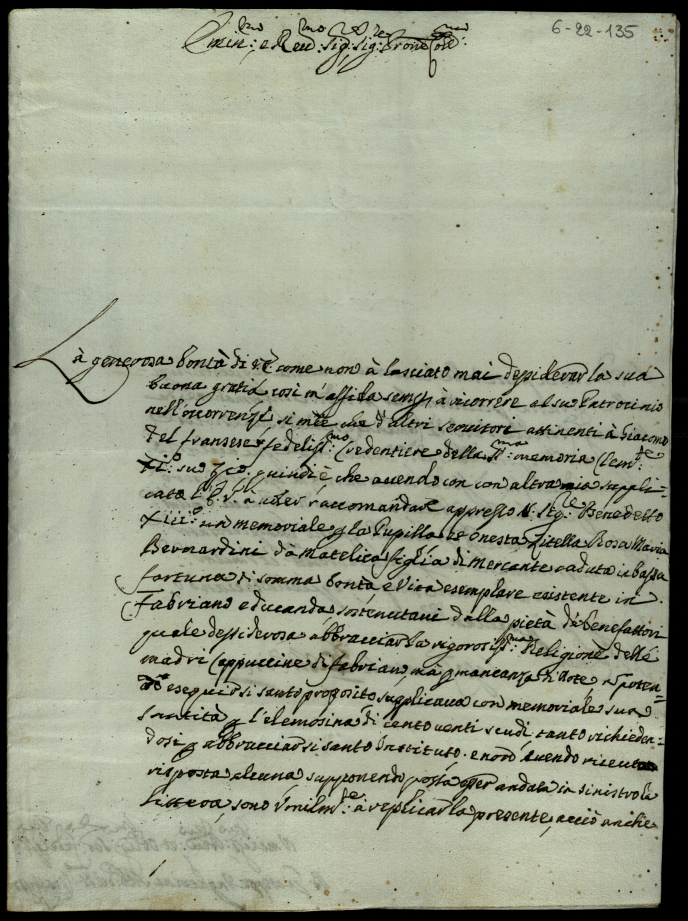 6-22-135
Emin:mo e Rev:mo Sig: Sig: e Prone Coll:mo
Là generosa bontà di V.E. come non à lasciato mai desiderar la sua
buona gratia cosi m'affida sempre à ricorrere al suo Patrocinio
nell'occorrenze si mie che d'altri servitori attinenti à Giacomo
del fransese fedeliss:mo Credentiere della S:ma memoria Clem:te
XI:o suo zio. quindi è che avendo con altra mia suppli-
cata l'E.V. à voler raccomandare appresso N. Sig:re Benedetto
XIII:o un memoriale per la Pupilla et onesta Zitella Rosa Maria
Bernardini dà Matelica figlia di Mercante caduta in bassa
fortuna di somma bontà e vita esemplare esistente in
Fabriano educanda sostenutavi dalla pietà dà benefattori
quale dessiderosa abbracciar la rigorosiss:ma Religione delle
madri Cappuccine di fabriano mà per mancanza di dote non poten-
do eseguir si santo proposito supplicava con memoriale sua
santità per l'elemosina di cento venti scudi tanto richieden-
dosi per abbracciar si santo Instituto. e non avendo ricevuta
risposta alcuna supponendo possa esser andata in sinistro la
lettera, sono umilm:te à replicar la presente, acciò anche